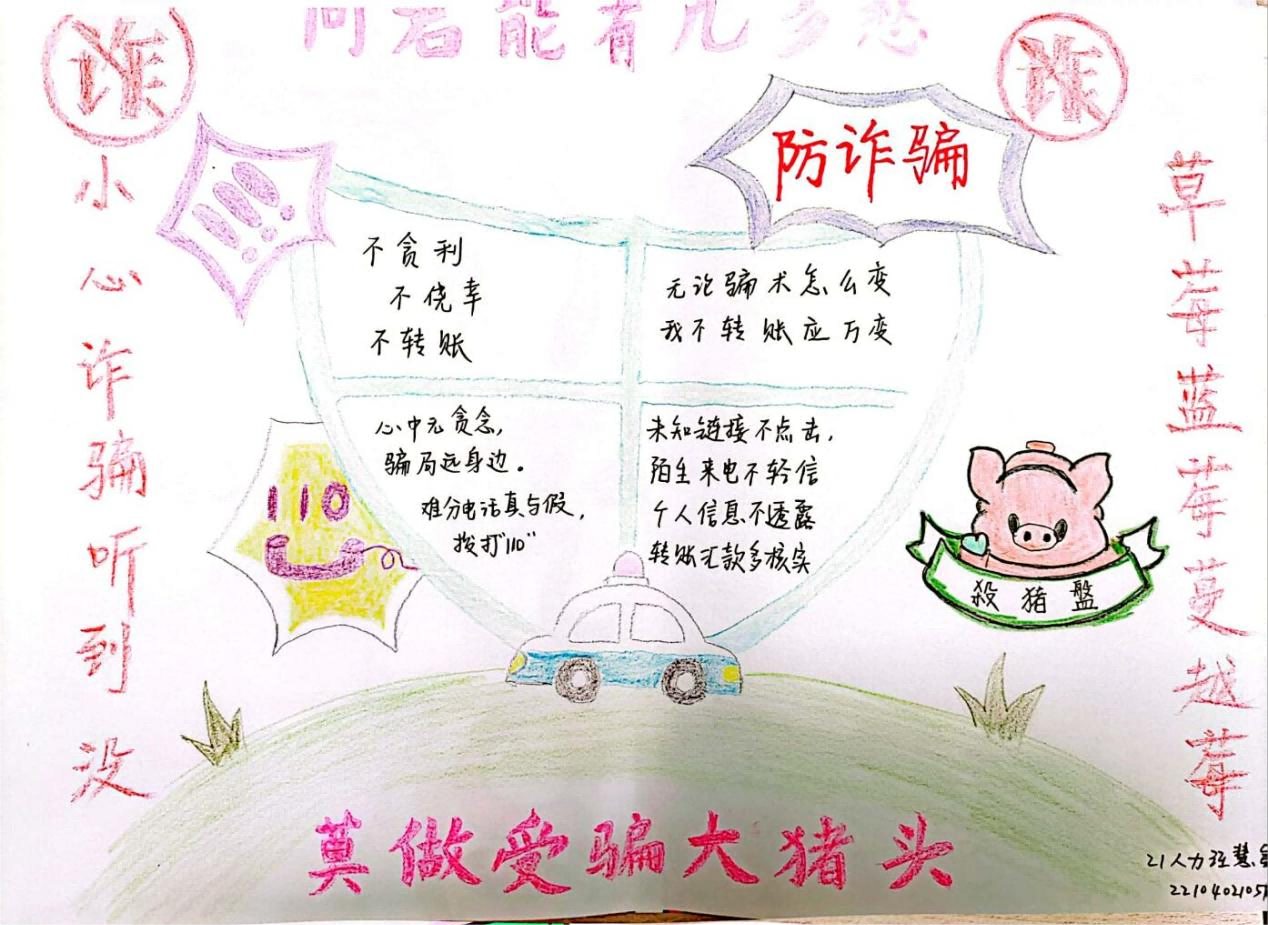 问君能有几多愁
诈
诈
防诈骗
!!!
小心诈骗听到没
草莓蓝莓蔓越莓
不贪利
不侥幸
不转账
无论骗术怎么变
我不转账应万变
心中无贪念,
骗局远身边。
难分电话真与假,
拨打"110"
未知链接不点击,
陌生来电不轻信
个人信息不透露
转账汇款多核实
110
殺猪盤
莫做受骗大猪头
21人力
221040210